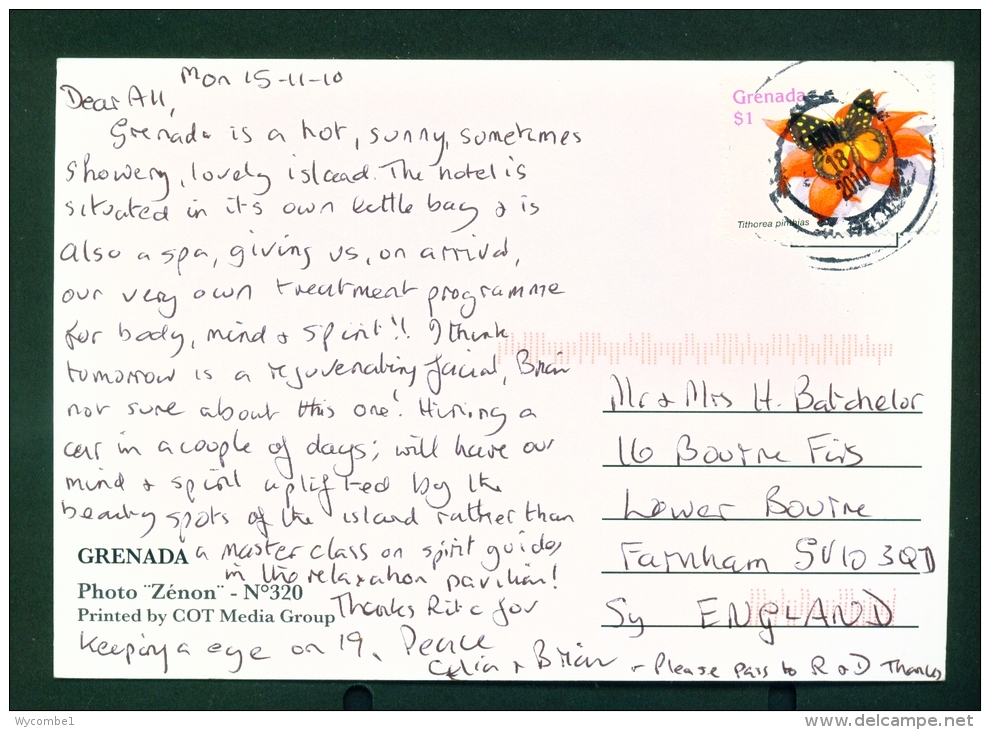 Mon 15-11-10
Dear All,
Grenada is a hot, sunny, sometimes
showery, lovely island. The hotel is
situated in it's own little bay & is
also a spa, giving us, on arrival,
our very own treatment programme
for body, mind & spirit!! I think
tomorrow is a rejuvenating facial, Brian
not sure about this one! Hiring a
car in a couple of days; will have our
mind & spirit uplifted by the
beauty spots of the island rather than
a master class on spirit guides
in the relaxation pavilion!
Thanks Rita for
keeping a eye on 19. Peace
Celia & Brian
- Please pass to R & D Thanks
GRENADA
Photo ¨Zénon¨ - N°320
Printed by COT Media Group
Grenada
$1
18
2010
Tithorea pinthias
Mr & Mrs H. Batchelor
16 Bourne Firs
Lower Bourne
Farnham GU10 3QD
Sy ENGLAND
Wycombe1
www.delcampe.net